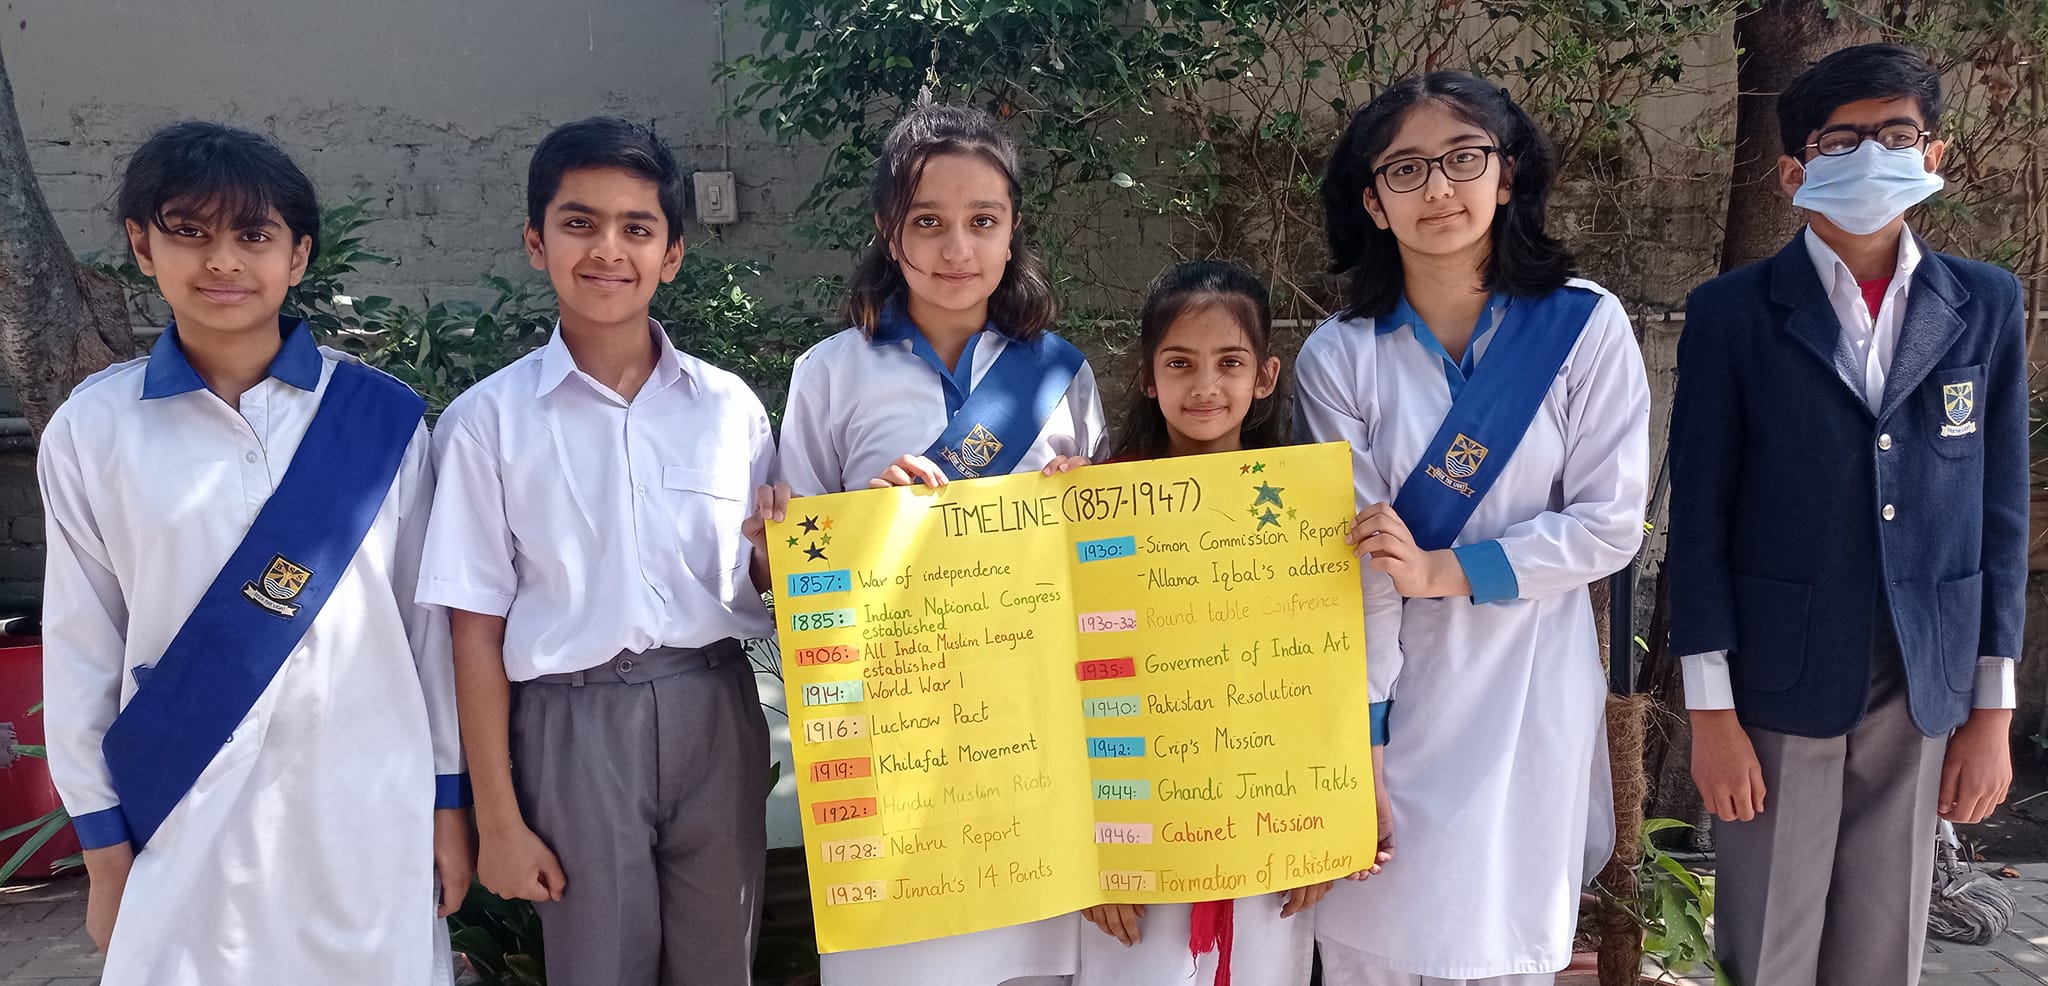 TIMELINE (1857-1947)
1857: War of independence
1885: Indian National Congress
established
1906: All India Muslim League
established
1914: World War 1
1916: Lucknow Pact
1919: Khilafat Movement
1922: Hindu Muslim Riots
1928: Nehru Report
1929: Jinnah's 14 Points
1930: -Simon Commission Report
-Allama Iqbal's address
1930-32: Round table Confrence
1935: Goverment of India Art
1940: Pakistan Resolution
1942: Crip's Mission
1944: Ghandi Jinnah Takls
1946: Cabinet Mission
1947: Formation of Pakistan